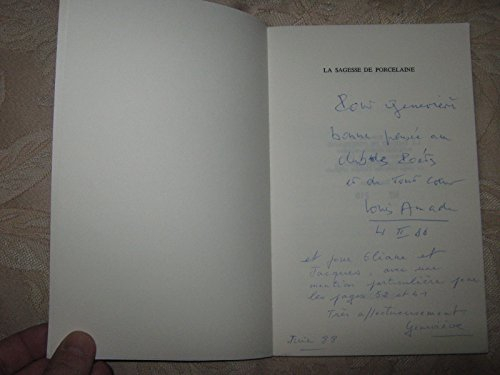 LA SAGESSE DE PORCELAINE
Pour Geneviève
bonne pensée au
Club des Poètes
et de tout cœur
Louis Amade
4 II 86
et pour Eliane et
Jacques, avec une
mention particulière pour
les pages 52 et 61
Très affectueusement
Geneviève
Juin 88